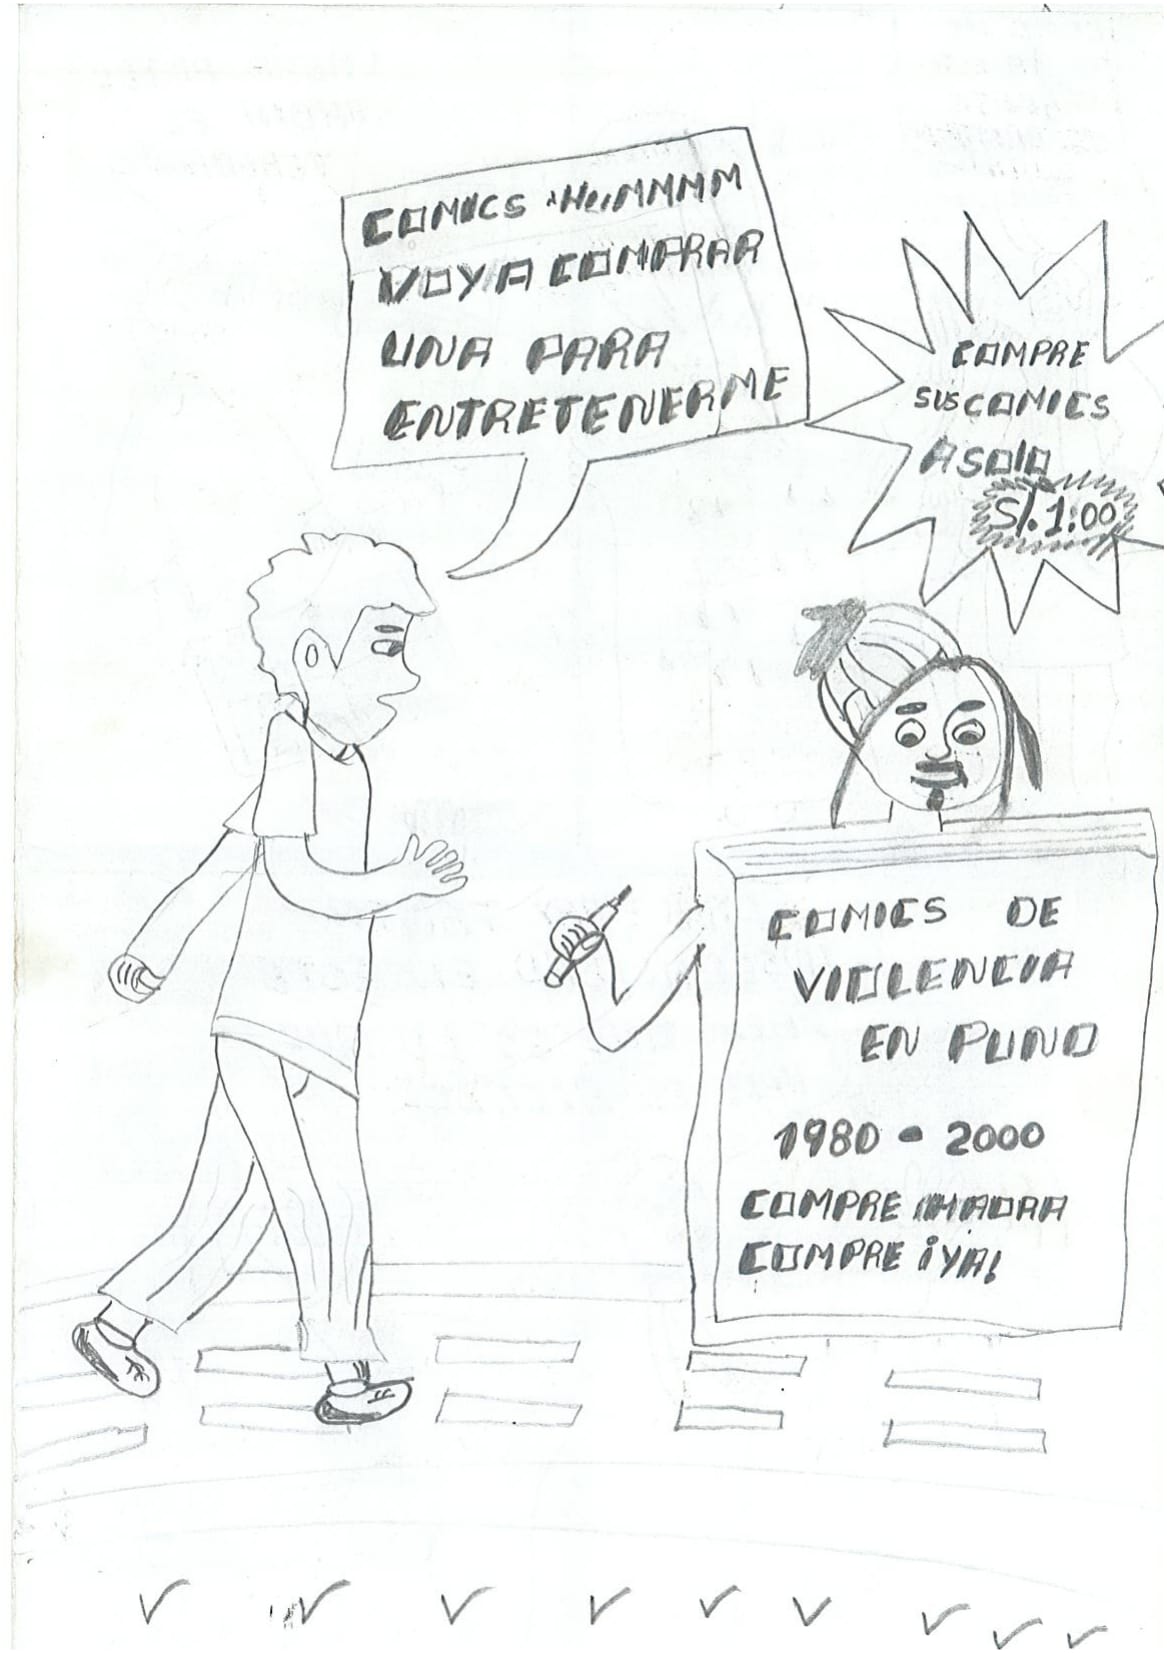 COMICS HUMMMM
VOY A COMPRAR
UNA PARA
ENTRETENERME
COMPRE
SUS COMICS
A SOLO
S/. 1:00
COMICS DE
VIOLENCIA
EN PUNO
1980 - 2000
COMPRE AHORA
COMPRE ¡YA!